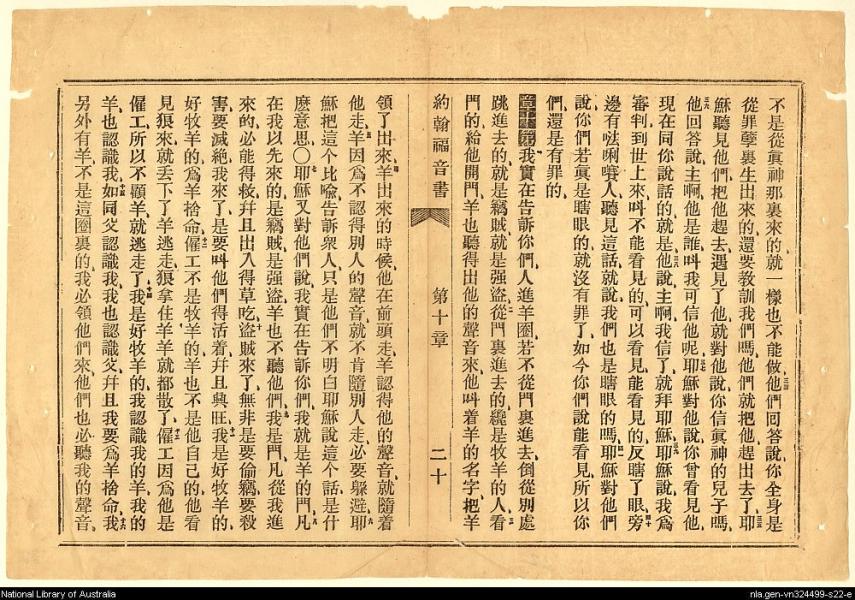 不是從眞神那裏來的就一樣也不能做他們回答說你全身是
從罪孽裏生出來的還要教訓我們嗎他們就把他趕出去了耶
穌聽見他們把他趕去遇見了他就對他說你信眞神的兒子嗎
他回答說主啊他是誰叫我可信他呢耶穌對他說你曾看見他
現在同你說話的就是他說主啊我信了就拜耶穌耶穌說我爲
審判到世上來叫不能看見的可以看見能看見的反瞎了眼旁
邊有㗒唎㘔人聽見這話就說我們也是瞎眼的嗎耶穌對他們
說你們若眞是瞎眼的就沒有罪了如今你們說能看見所以你
們還是有罪的
第十章我實在告訴你們人進羊圈若不從門裏進去倒從別處
跳進去的就是竊賊就是强盜從門裏進去的纔是牧羊的人看
門的給他開門羊也聽得出他的聲音來他叫着羊的名字把羊
約翰福音書 第十章 二十
領了出來羊出來的時候他在前頭走羊認得他的聲音就隨着
他走羊因爲不認得別人的聲音就不肯隨別人走必要躱避耶
穌把這个比喩告訴衆人只是他們不明白耶穌說這个話是什
麽意思〇耶穌又對他們說我實在告訴你們我就是羊的門凡
在我以先來的是竊賊是强盜羊也不聽他們我是門凡從我進
來的必能得救幷且出入得草吃盜賊來了無非是要偷竊要殺
害要滅絶我來了是要叫他們得活着幷且興旺我是好牧羊的
好牧羊的爲羊捨命僱工不是牧羊的羊也不是他自己的他看
見狼來就丟下了羊逃走狼拿住羊羊就都散了僱工因爲他是
僱工所以不顧羊就逃走了我是好牧羊的我認識我的羊我的
羊也認識我如同父認識我我也認識父幷且我要爲羊捨命我
另外有羊不是這圈裏的我必領他們來他們也必聽我的聲音
National Library of Australia
nla.gen-vn324499-s22-e